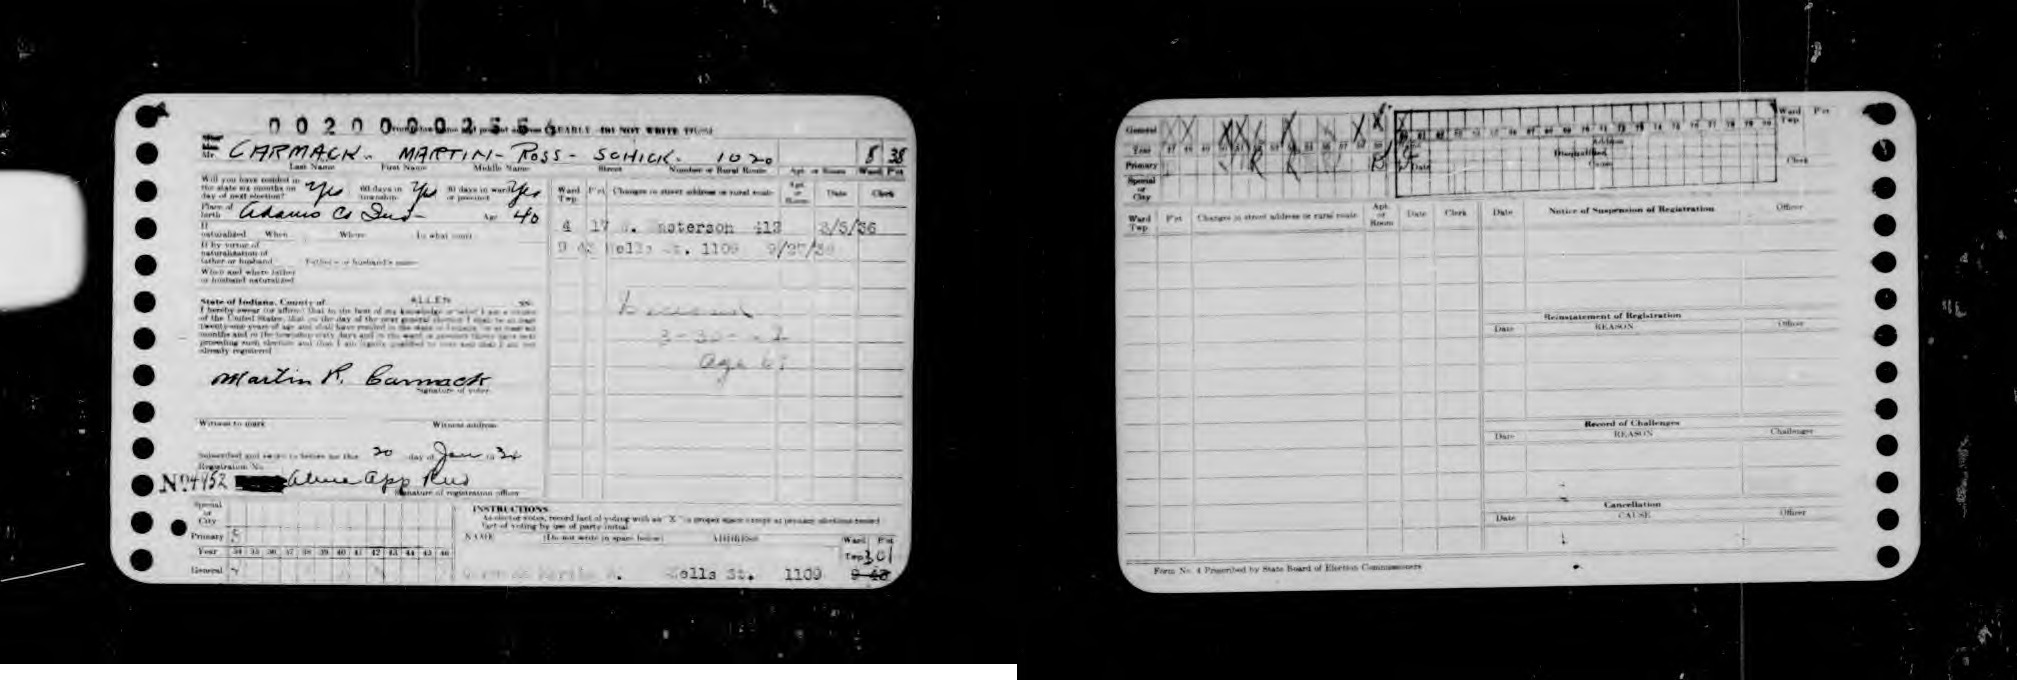 0 0 2 0 0 0 0 2 5 5
Mr. CARMACK - MARTIN - ROSS - SCHICK - 1020 8 38
Last Name First Name Middle Name Street Number or Rural Route Apt. or Room Ward Pct
Will you have resided in
the state six months on Yes 60 days in Yes 30 days in ward Yes
day of next election? township or precinct
Place of
birth Adams Co Ind - Age 40
If
naturalized When Where In what court
If by virtue of
naturalization of
father or husband Father's or husband's name
When and where father
or husband naturalized
Ward Twp. Pct Changes in street address or rural route Apt. or Room Date Clerk
4 17 413 3/5/36
9 Wells St. 1109
3-30-
age
State of Indiana, County of ALLEN ss:
I hereby swear (or affirm) that to the best of my knowledge or belief I am a citizen
of the United States; that on the day of the next general election I shall be at least
twenty-one years of age and shall have resided in the state of Indiana for at least six
months and in the township sixty days and in the ward or precinct thirty days next
preceding such election and that I am legally qualified to vote and that I am not
already registered
Martin R. Carmack
Signature of voter
Witness to mark Witness address
Subscribed and sworn to before me this 20 day of Jan 19 34
Registration No.
Signature of registration officer
Special
or
City
Primary
Year 34 35 36 37 38 39 40 41 42 43 44 45 46
General
INSTRUCTIONS
As elector votes, record fact of voting with an "X" in proper space except at primary elections record
fact of voting by use of party initial
NAME (Do not write in space below) ADDRESS Ward Pct
Twp
Wells St. 1109 9-43
General
Year 47 48 49 50 51 52 53 54 55 56 57 58 59
Primary
Special
or
City
Ward
Twp.
Pct
Disqualified
Date Cause Clerk
Ward Twp. Pct Changes in street address or rural route Apt. or Room Date Clerk
Date Notice of Suspension of Registration Officer
Reinstatement of Registration
Date REASON Officer
Record of Challenges
Date REASON Challenger
Cancellation
Date CAUSE Officer
Form No. 4 Prescribed by State Board of Election Commissioners